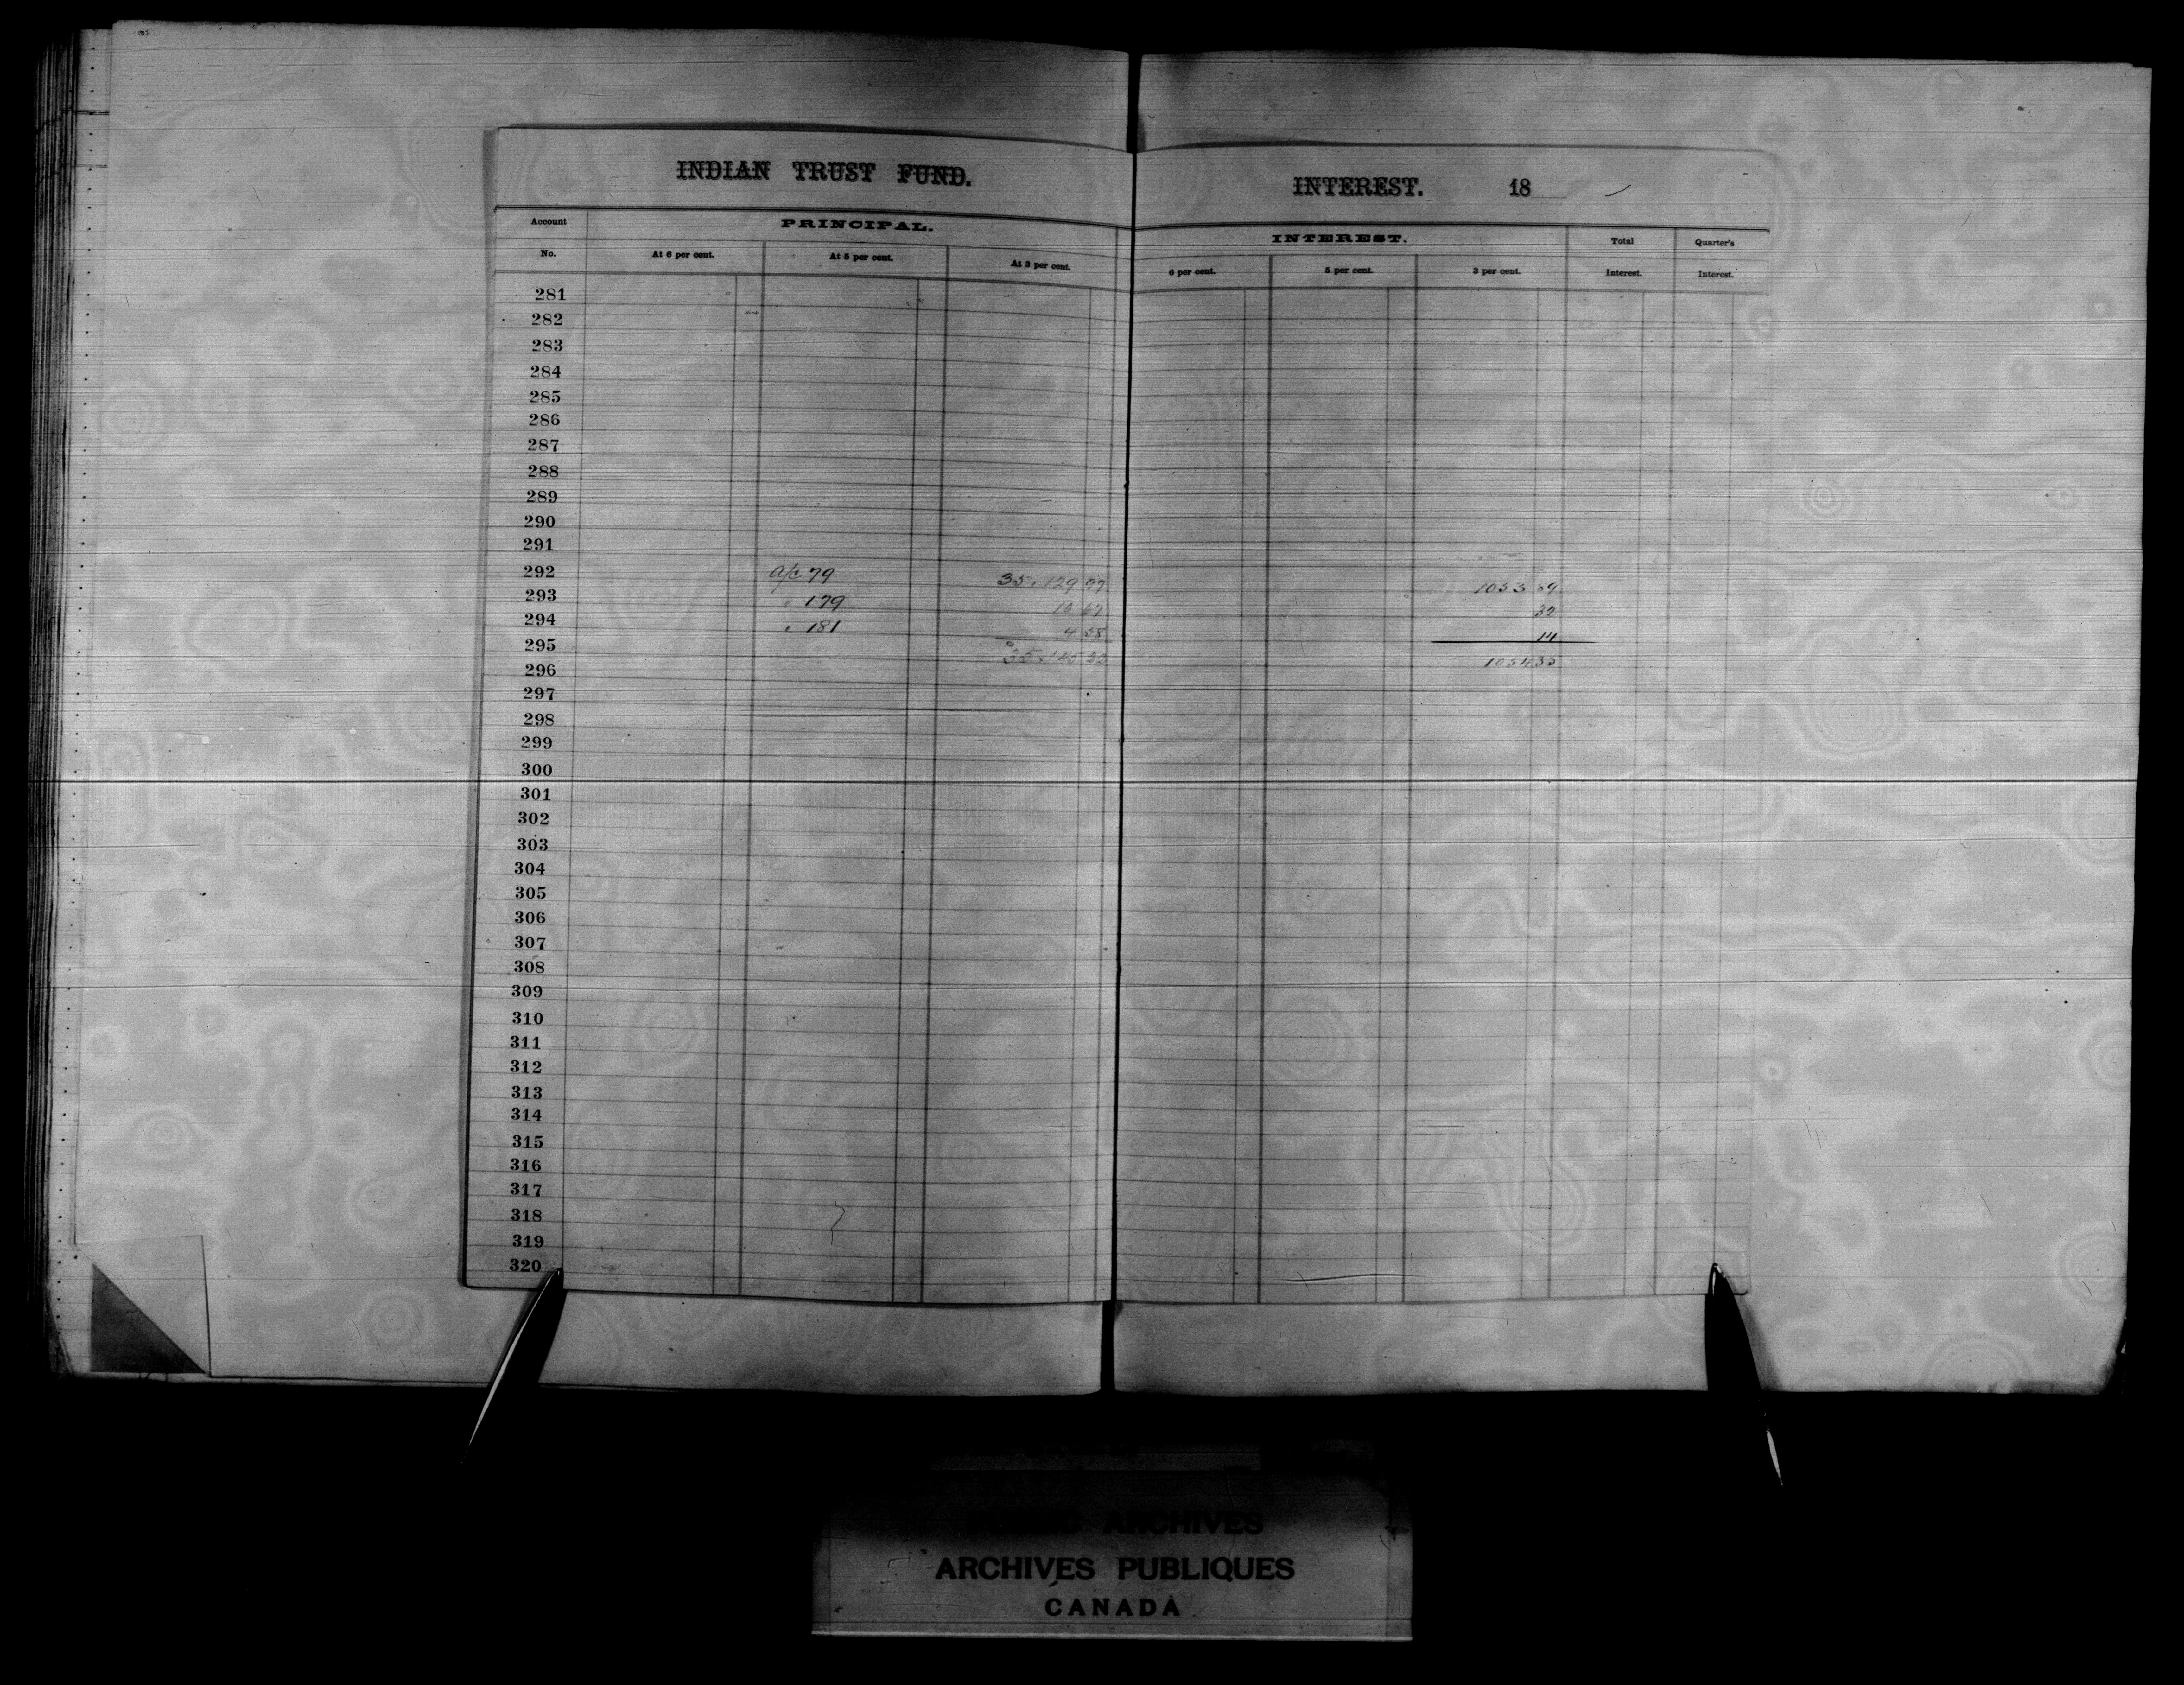 INDIAN TRUST FUND.
INTEREST. 18
Account No. PRINCIPAL. At 6 per cent. At 5 per cent. At 3 per cent.
INTEREST. 6 per cent. 5 per cent. 3 per cent. Total Interest. Quarter's Interest.
281
282
283
284
285
286
287
288
289
290
291
292 a/c 79 35,129 97 1053 89
293 " 179 10 67 32
294 " 181 4 58 14
295 35,145 22 1054 35
296
297
298
299
300
301
302
303
304
305
306
307
308
309
310
311
312
313
314
315
316
317
318
319
320
PUBLIC ARCHIVES
ARCHIVES PUBLIQUES
CANADA